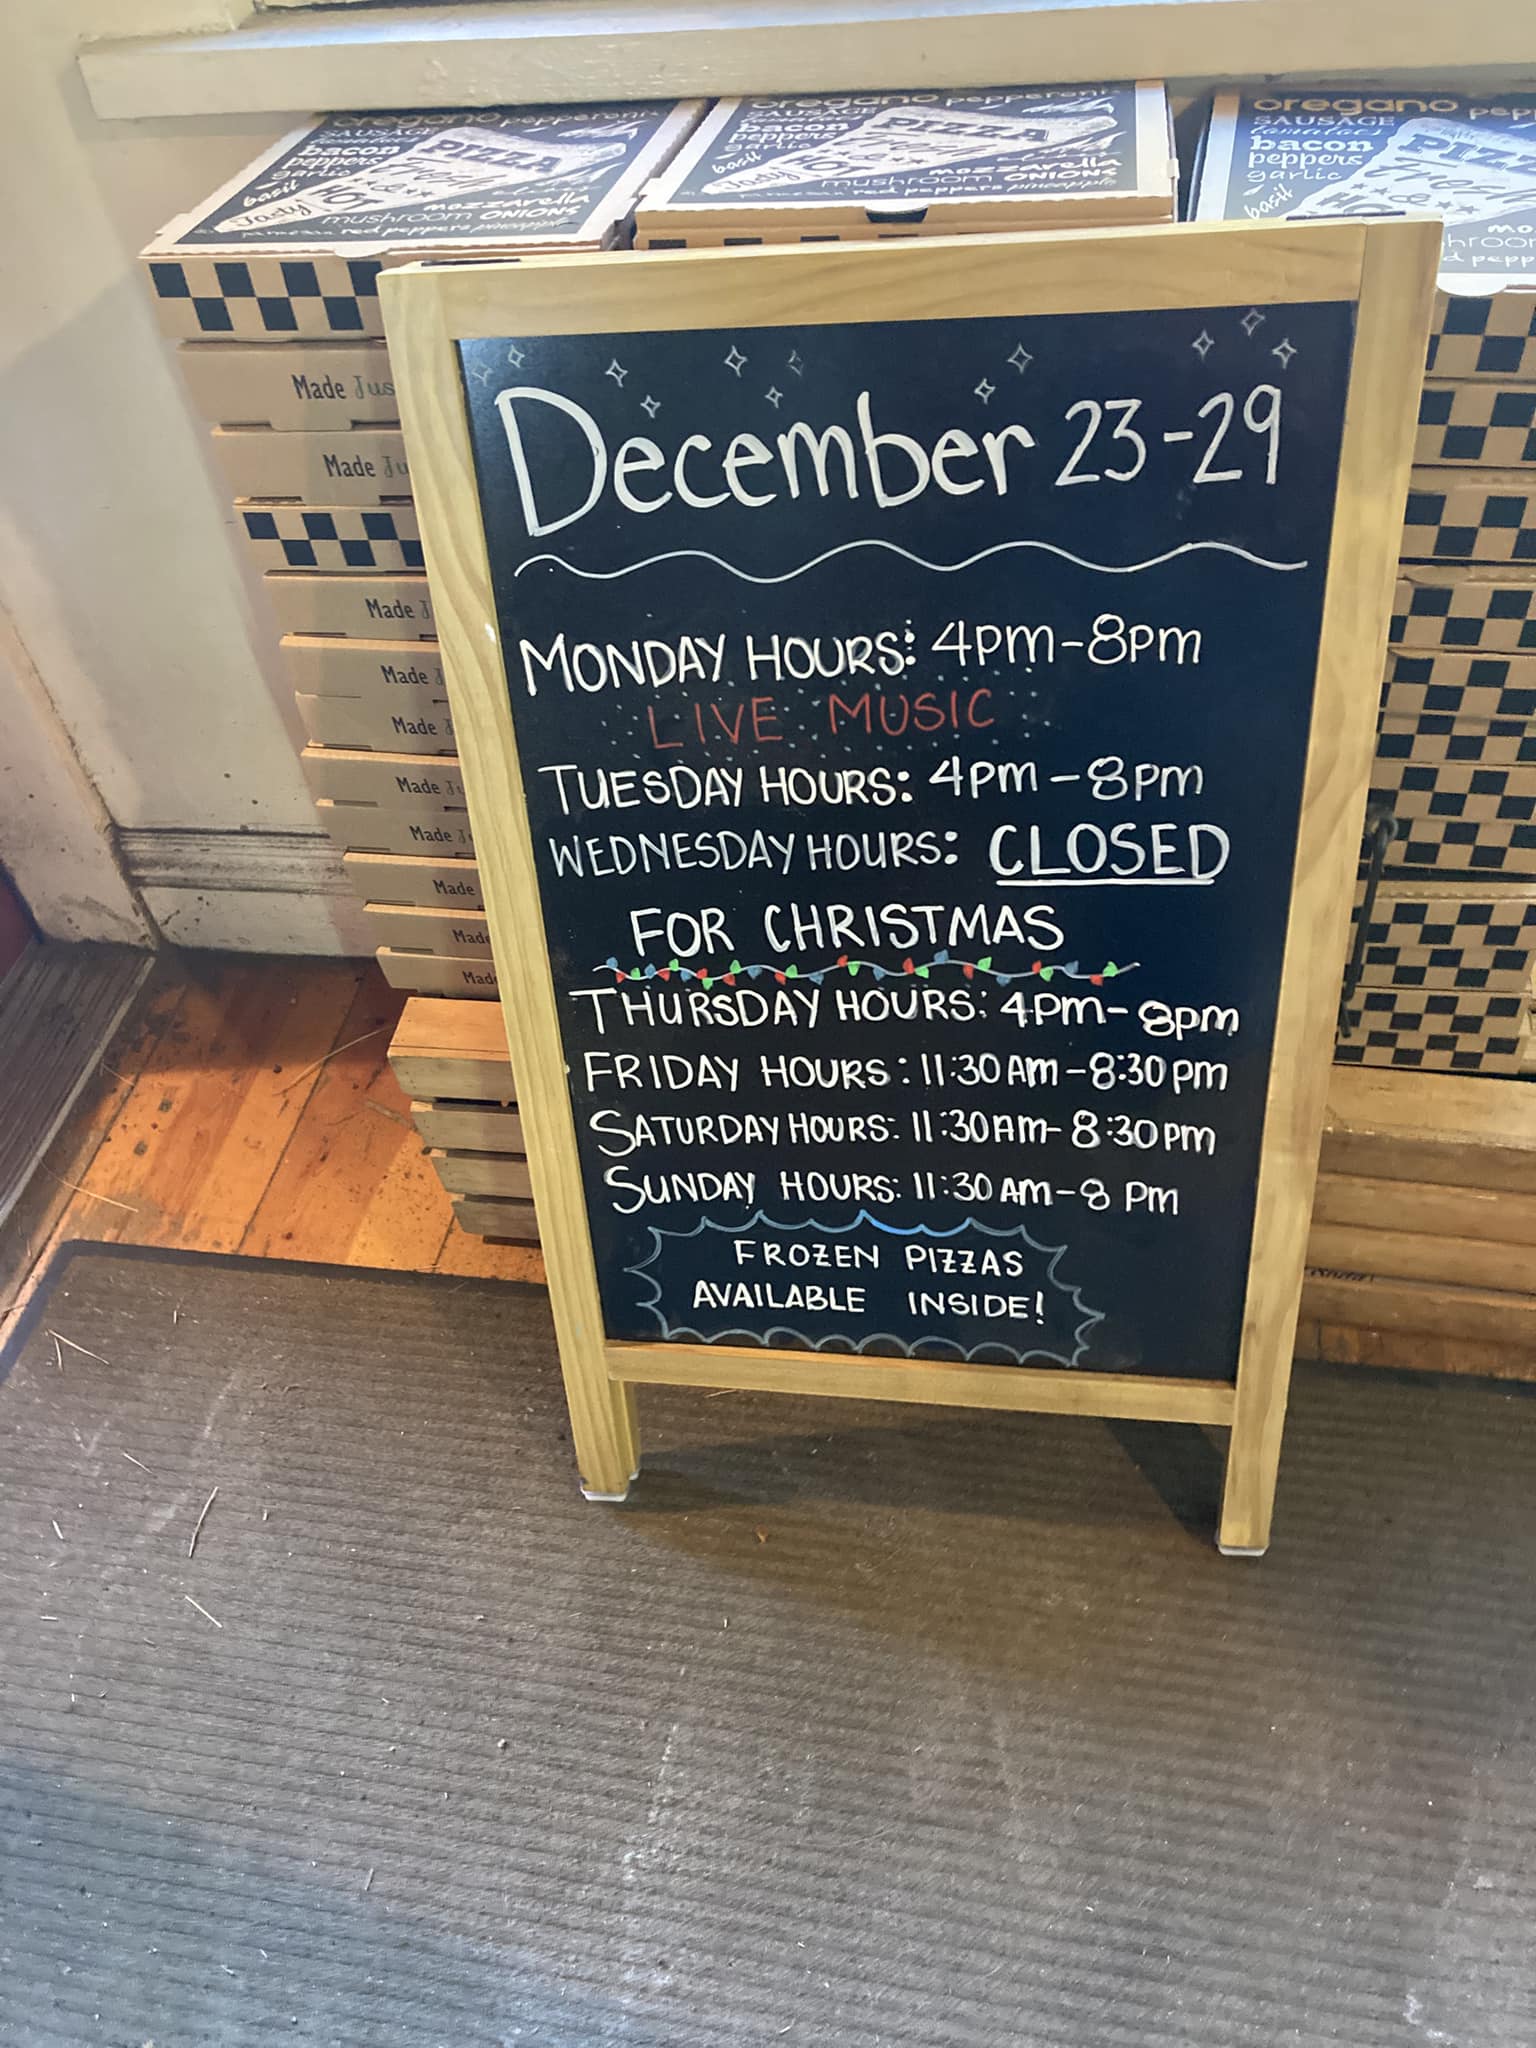 oregano pepperoni
SAUSAGE
bacon
peppers
garlic
basil
PIZZA
HOT
mozzarella
mushroom ONIONS
parmesan red peppers pineapple
oregano pepperoni
SAUSAGE
tomatoes
bacon
peppers
garlic
basil
PIZZA
HOT
mozzarella
mushroom ONIONS
parmesan red peppers pineapple
oregano
SAUSAGE
tomatoes
bacon
peppers
garlic
basil
Made
Made
Made
Made
Made
Made
Made
Made
Made
Made
December 23-29
MONDAY HOURS: 4pm-8pm
LIVE MUSIC
TUESDAY HOURS: 4pm-8pm
WEDNESDAY HOURS: CLOSED
FOR CHRISTMAS
THURSDAY HOURS: 4pm-8pm
FRIDAY HOURS: 11:30 Am-8:30 pm
SATURDAY HOURS: 11:30 Am-8:30 pm
SUNDAY HOURS: 11:30 AM-8 Pm
FROZEN PIZZAS
AVAILABLE INSIDE!